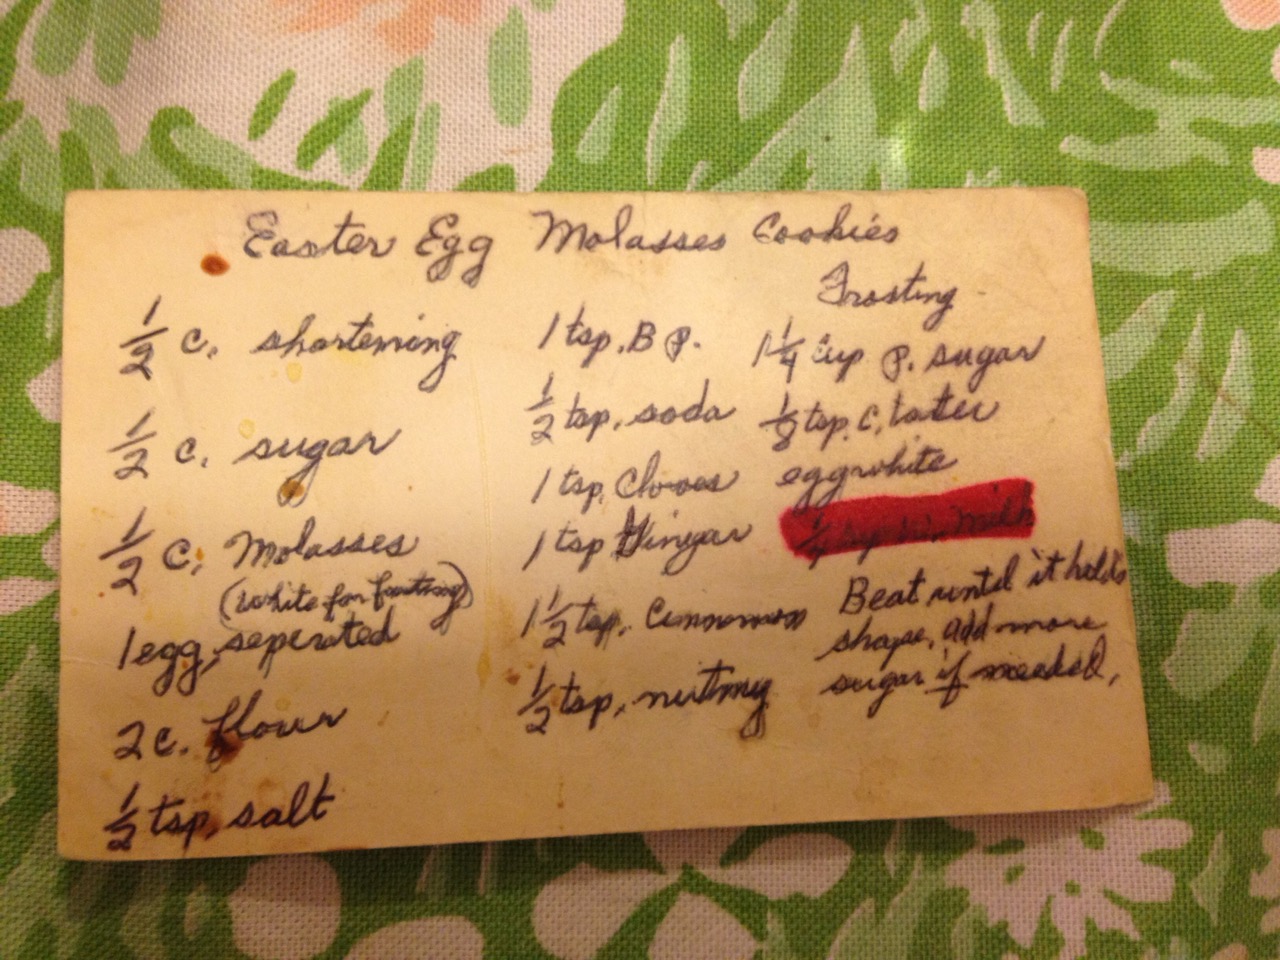 Easter Egg Molasses Cookies
1/2 c. shortening
1/2 c. sugar
1/2 c. Molasses
(white for frosting)
1 egg, seperated
2 c. flour
1/2 tsp. salt
1 tsp. B P.
1/2 tsp. soda
1 tsp. Cloves
1 tsp Gingar
1 1/2 tsp. Cinnamon
1/2 tsp. nutmg
Frosting
1 1/4 Cup P. sugar
1/8 tsp. C. tarter
egg white
1/4 Milk
Beat until it holds
shape, add more
sugar if needed,